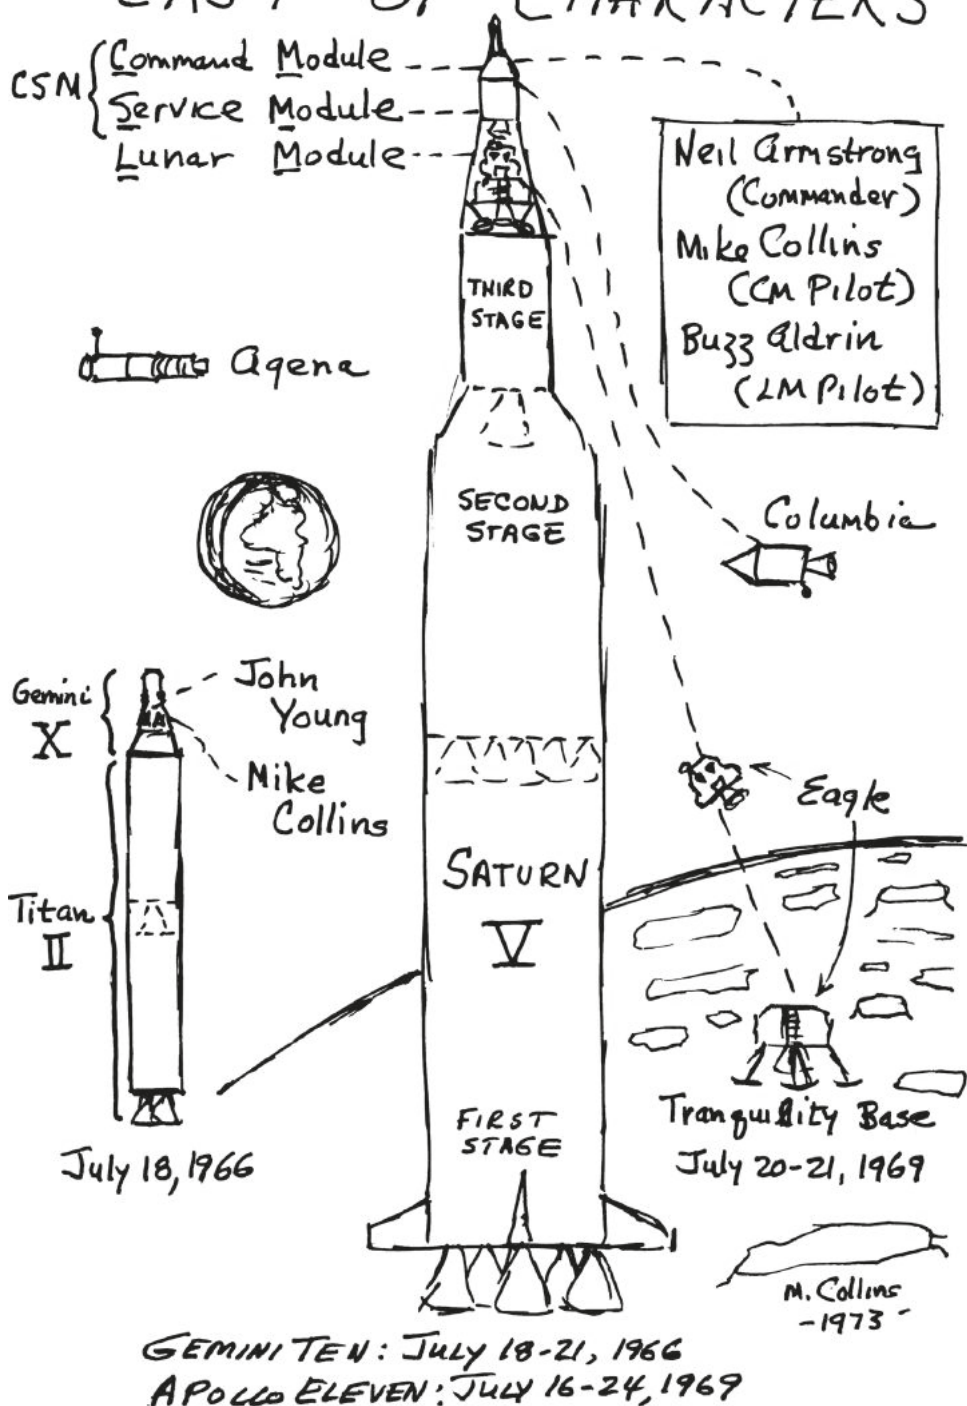 CAST OF CHARACTERS
CSM
Command Module
Service Module
Lunar Module
Neil Armstrong
(Commander)
Mike Collins
(CM Pilot)
Buzz Aldrin
(LM Pilot)
THIRD
STAGE
Agena
SECOND
STAGE
Columbia
Gemini
X
John
Young
Mike
Collins
Eagle
Titan
II
SATURN
V
FIRST
STAGE
July 18, 1966
Tranquility Base
July 20-21, 1969
M. Collins
-1973-
GEMINI TEN: JULY 18-21, 1966
APOLLO ELEVEN: JULY 16-24, 1969